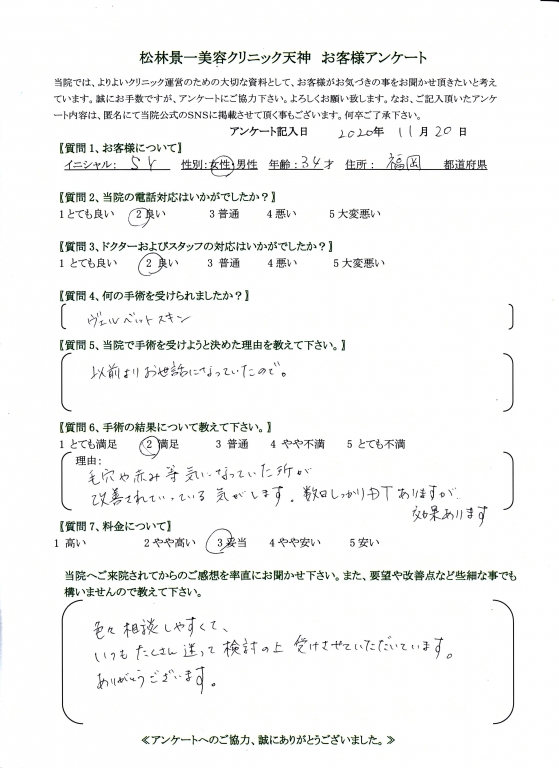 松林景一美容クリニック天神 お客様アンケート
当院では、よりよいクリニック運営のための大切な資料として、お客様がお気づきの事をお聞かせ頂きたいと考え
ています。誠にお手数ですが、アンケートにご協力下さい。よろしくお願い致します。なお、ご記入頂いたアンケ
ート内容は、匿名にて当院公式のSNSに掲載させて頂く事もございます。何卒ご了承下さい。
アンケート記入日 2020年 11月20日
〖質問1、お客様について〗
イニシャル: SY 性別:女性・男性 年齢:34才 住所: 福岡 都道府県
〖質問2、当院の電話対応はいかがでしたか?〗
1とても良い 2良い 3普通 4悪い 5大変悪い
〖質問3、ドクターおよびスタッフの対応はいかがでしたか?〗
1 とても良い 2 良い 3 普通 4悪い 5大変悪い
〖質問4、何の手術を受けられましたか?〗
ヴェルベットスキン
〖質問5、当院で手術を受けようと決めた理由を教えて下さい。〗
以前よりお世話になっていたので。
〖質問6、手術の結果について教えて下さい。〗
1 とても満足 2 満足 3 普通 4 やや不満 5 とても不満
理由:
毛穴や赤み等気になっていた所が
改善されていっている気がします。数日しっかりDTありますが
効果あります
〖質問7、料金について〗
1 高い 2やや高い 3妥当 4やや安い 5安い
当院へご来院されてからのご感想を率直にお聞かせ下さい。また、要望や改善点など些細な事でも
構いませんので教えて下さい。
色々相談しやすくて、
いつもたくさん迷って検討の上受けさせていただいています。
ありがとうございます。
≪アンケートへのご協力、誠にありがとうございました。≫